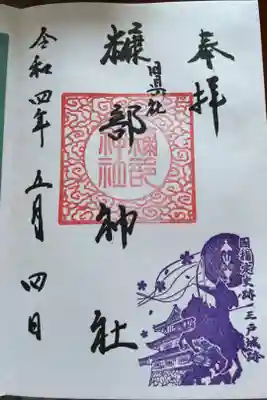 奉拝
旧県社
糠部神社
糠部神社
令和四年五月四日
国指定史跡 三戸城跡